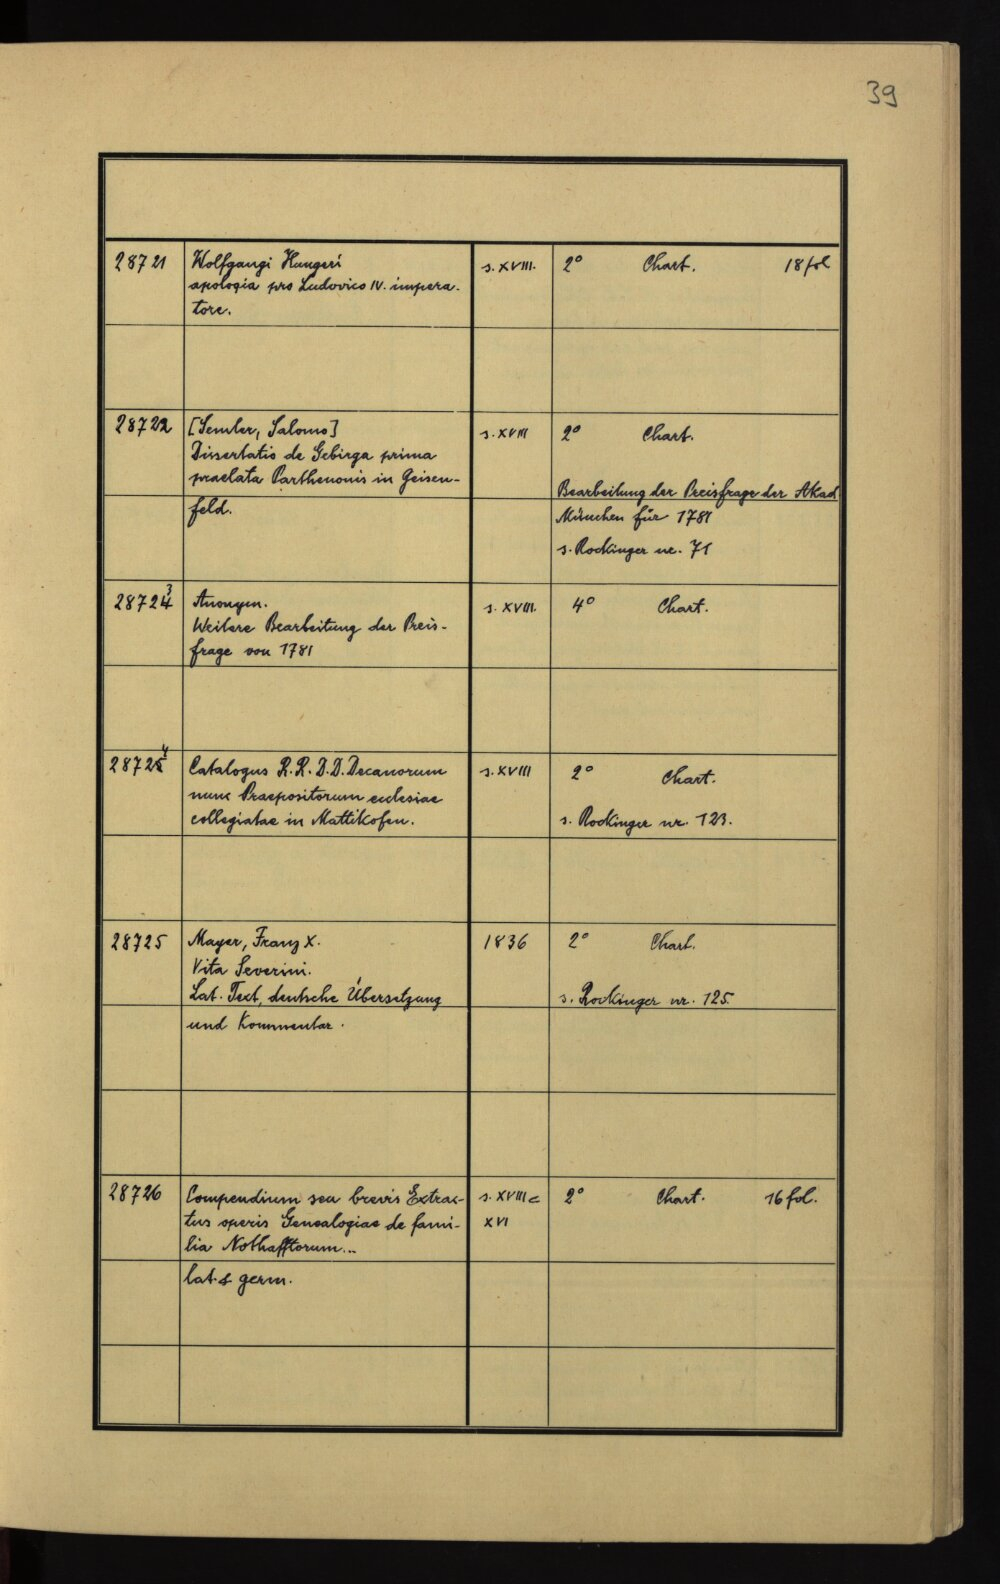 39
28721 Wolfgangi Hungeri s. XVIII. 2° Chart. 18 fol
apologia pro Ludovico IV. impera-
tore.
28722 [Semler, Salomo] s. XVIII 2° Chart.
Dissertatio de Gebirga prima
praelata Parthenonis in Geisen-
feld.
Bearbeitung der Preisfrage der Akad.
München für 1781
s. Rockinger nr. 71
28723 Anonym. s. XVIII. 4° Chart.
Weitere Bearbeitung der Preis-
frage von 1781
28724 Catalogus R.R.D.D. Decanorum s. XVIII 2° Chart.
nunc Praepositorum ecclesiae
collegiatae in Mattikofen. s. Rockinger nr. 123.
28725 Mayer, Franz X. 1836 2° Chart.
Vita Severini.
Lat. Text, deutsche Übersetzung s. Rockinger nr. 125.
und Kommentar.
28726 Compendium seu brevis Extrac- s. XVIII 2° Chart. 16 fol.
tus operis Genealogiae de fami- XVI
lia Nothafftorum...
lat. & germ.